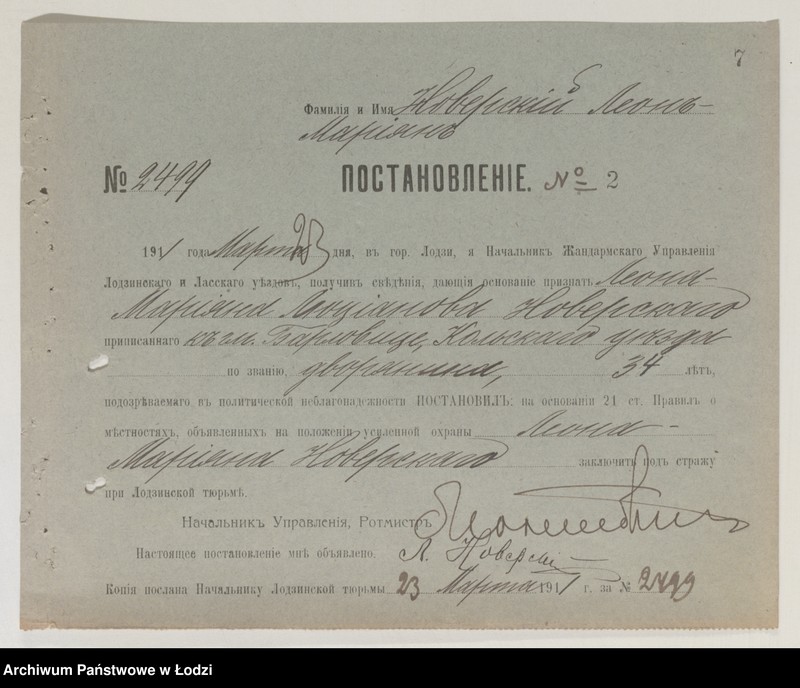 7
Фамилія и Имя Новерскій Леонъ-
Маріянъ
№ 2499 ПОСТАНОВЛЕНІЕ. № 2
1911 года Марта 23 дня, въ гор. Лодзи, я Начальникъ Жандармскаго Управленія
Лодзинскаго и Ласскаго уѣздовъ, получивъ свѣдѣнія, дающія основаніе признать Леона-
Маріяна Люціанова Новерскаго
приписаннаго къ гм. Барловице, Кольскаго уѣзда
по званію, дворянина, 34 лѣтъ,
подозрѣваемаго въ политической неблагонадежности ПОСТАНОВИЛЪ: на основаніи 21 ст. Правилъ о
мѣстностяхъ, объявленныхъ на положеніи усиленной охраны Леона-
Маріяна Новерскаго заключить подъ стражу
при Лодзинской тюрьмѣ.
Начальникъ Управленія, Ротмистръ
Настоящее постановленіе мнѣ объявлено. Л. Новерскі
Копія послана Начальнику Лодзинской тюрьмы 23 Марта 1911 г. за № 2499
Archiwum Państwowe w Łodzi